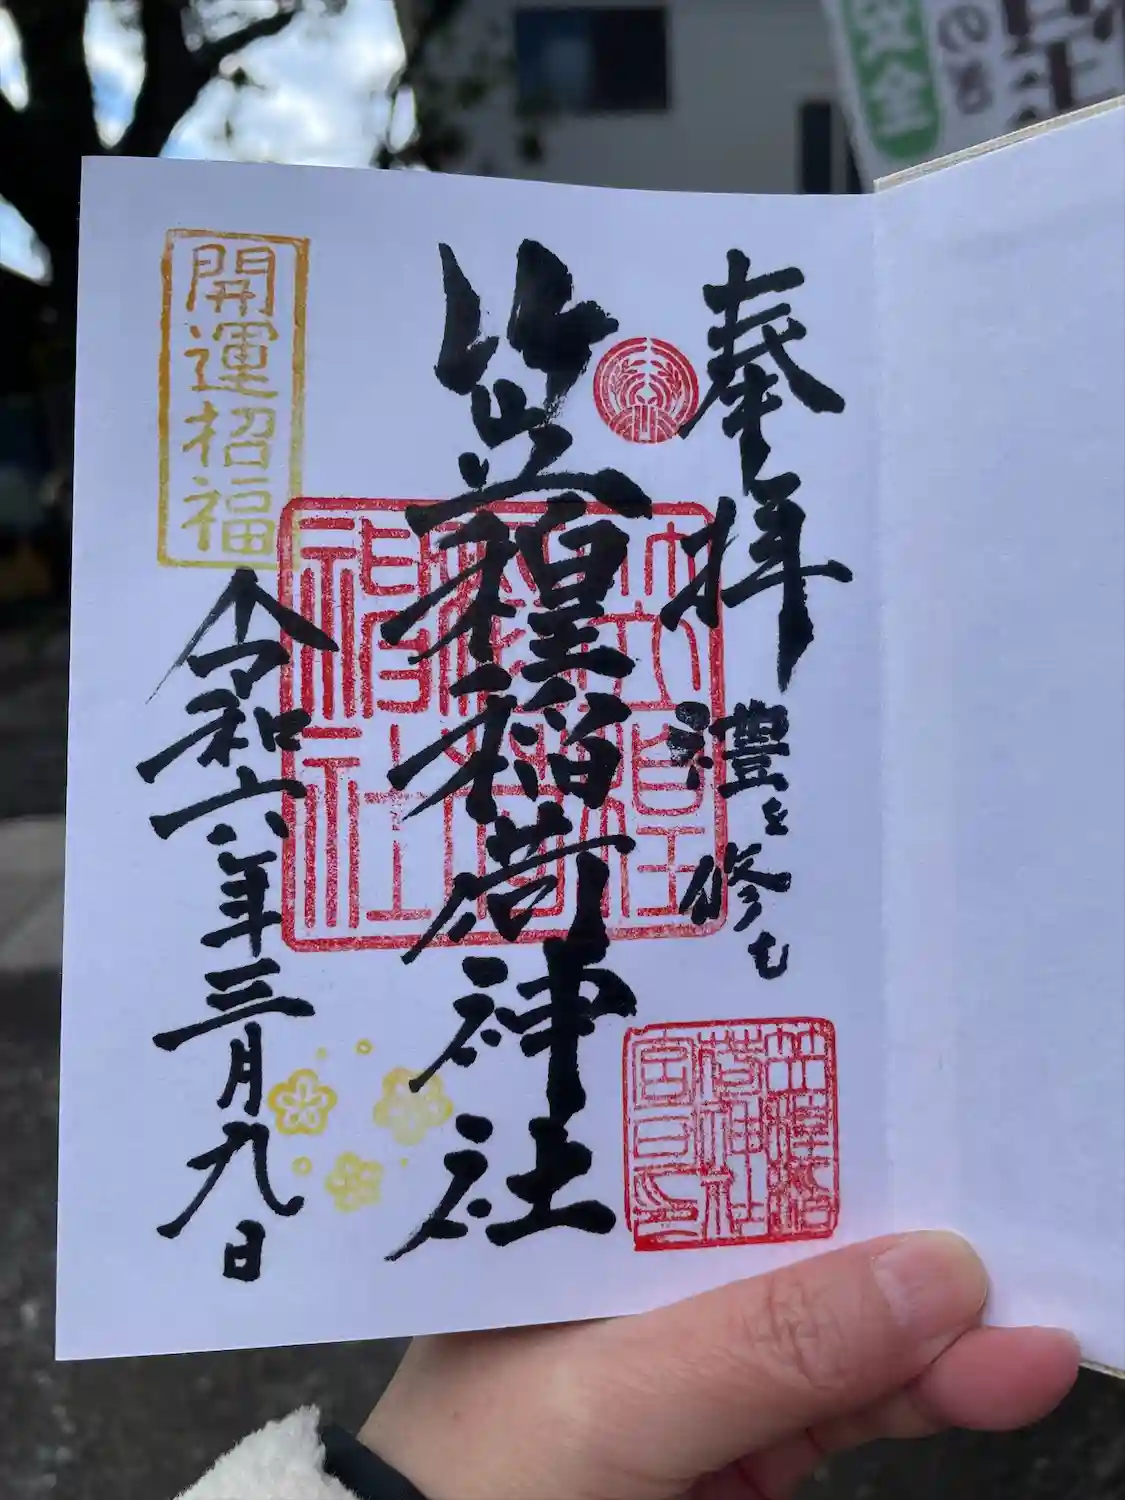 奉拝
禮を修む
笠䅣稲荷神社
笠䅣稲荷神社
笠䅣稲荷神社宮司印
開運招福
令和六年三月九日